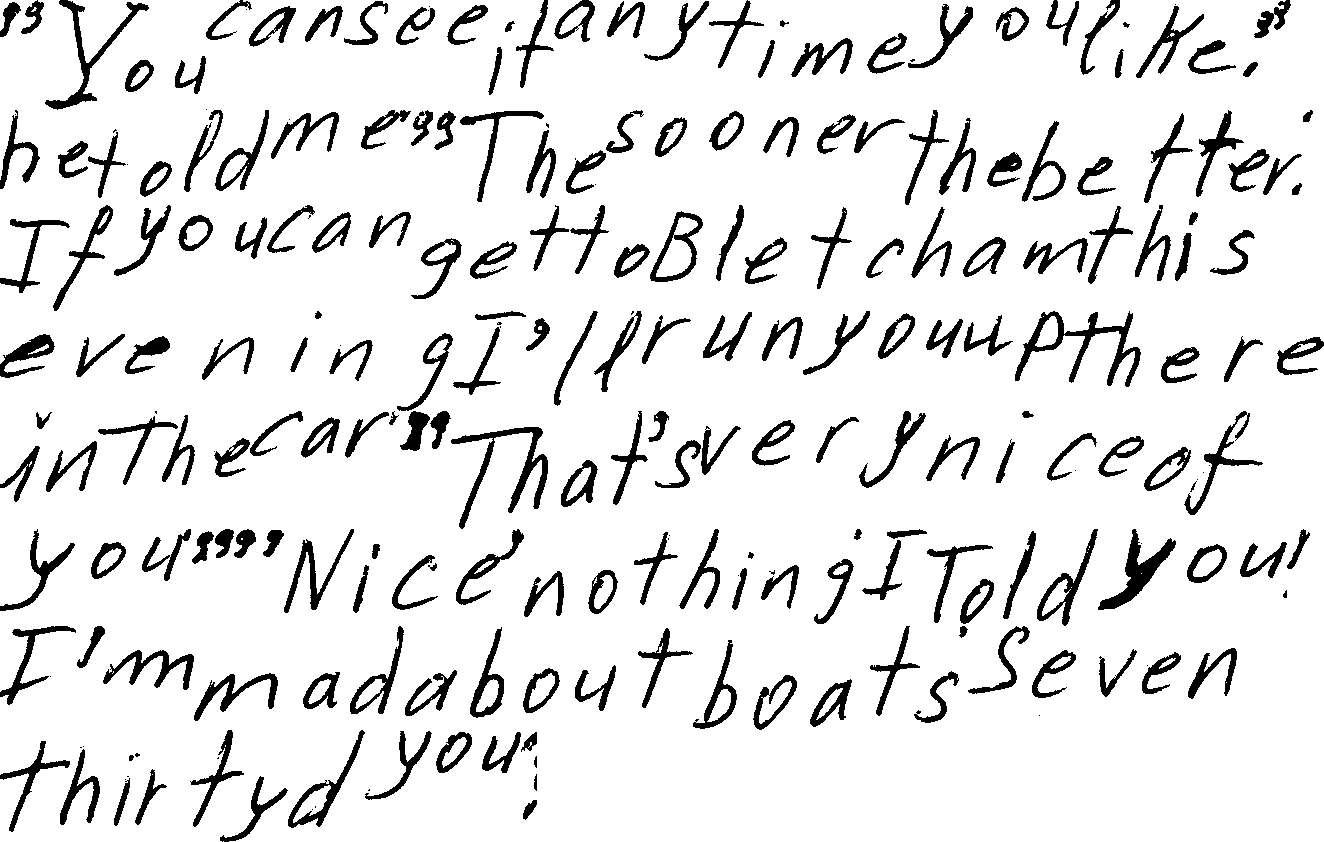 "You can see it any time you like."
he told me. "The sooner the better.
If you can get to Bletcham this
evening I'll run you up there
in the car." "That's very nice of
you." "Nice' nothing I Told you!
I'm mad about boats. Seven
thirty d'you?